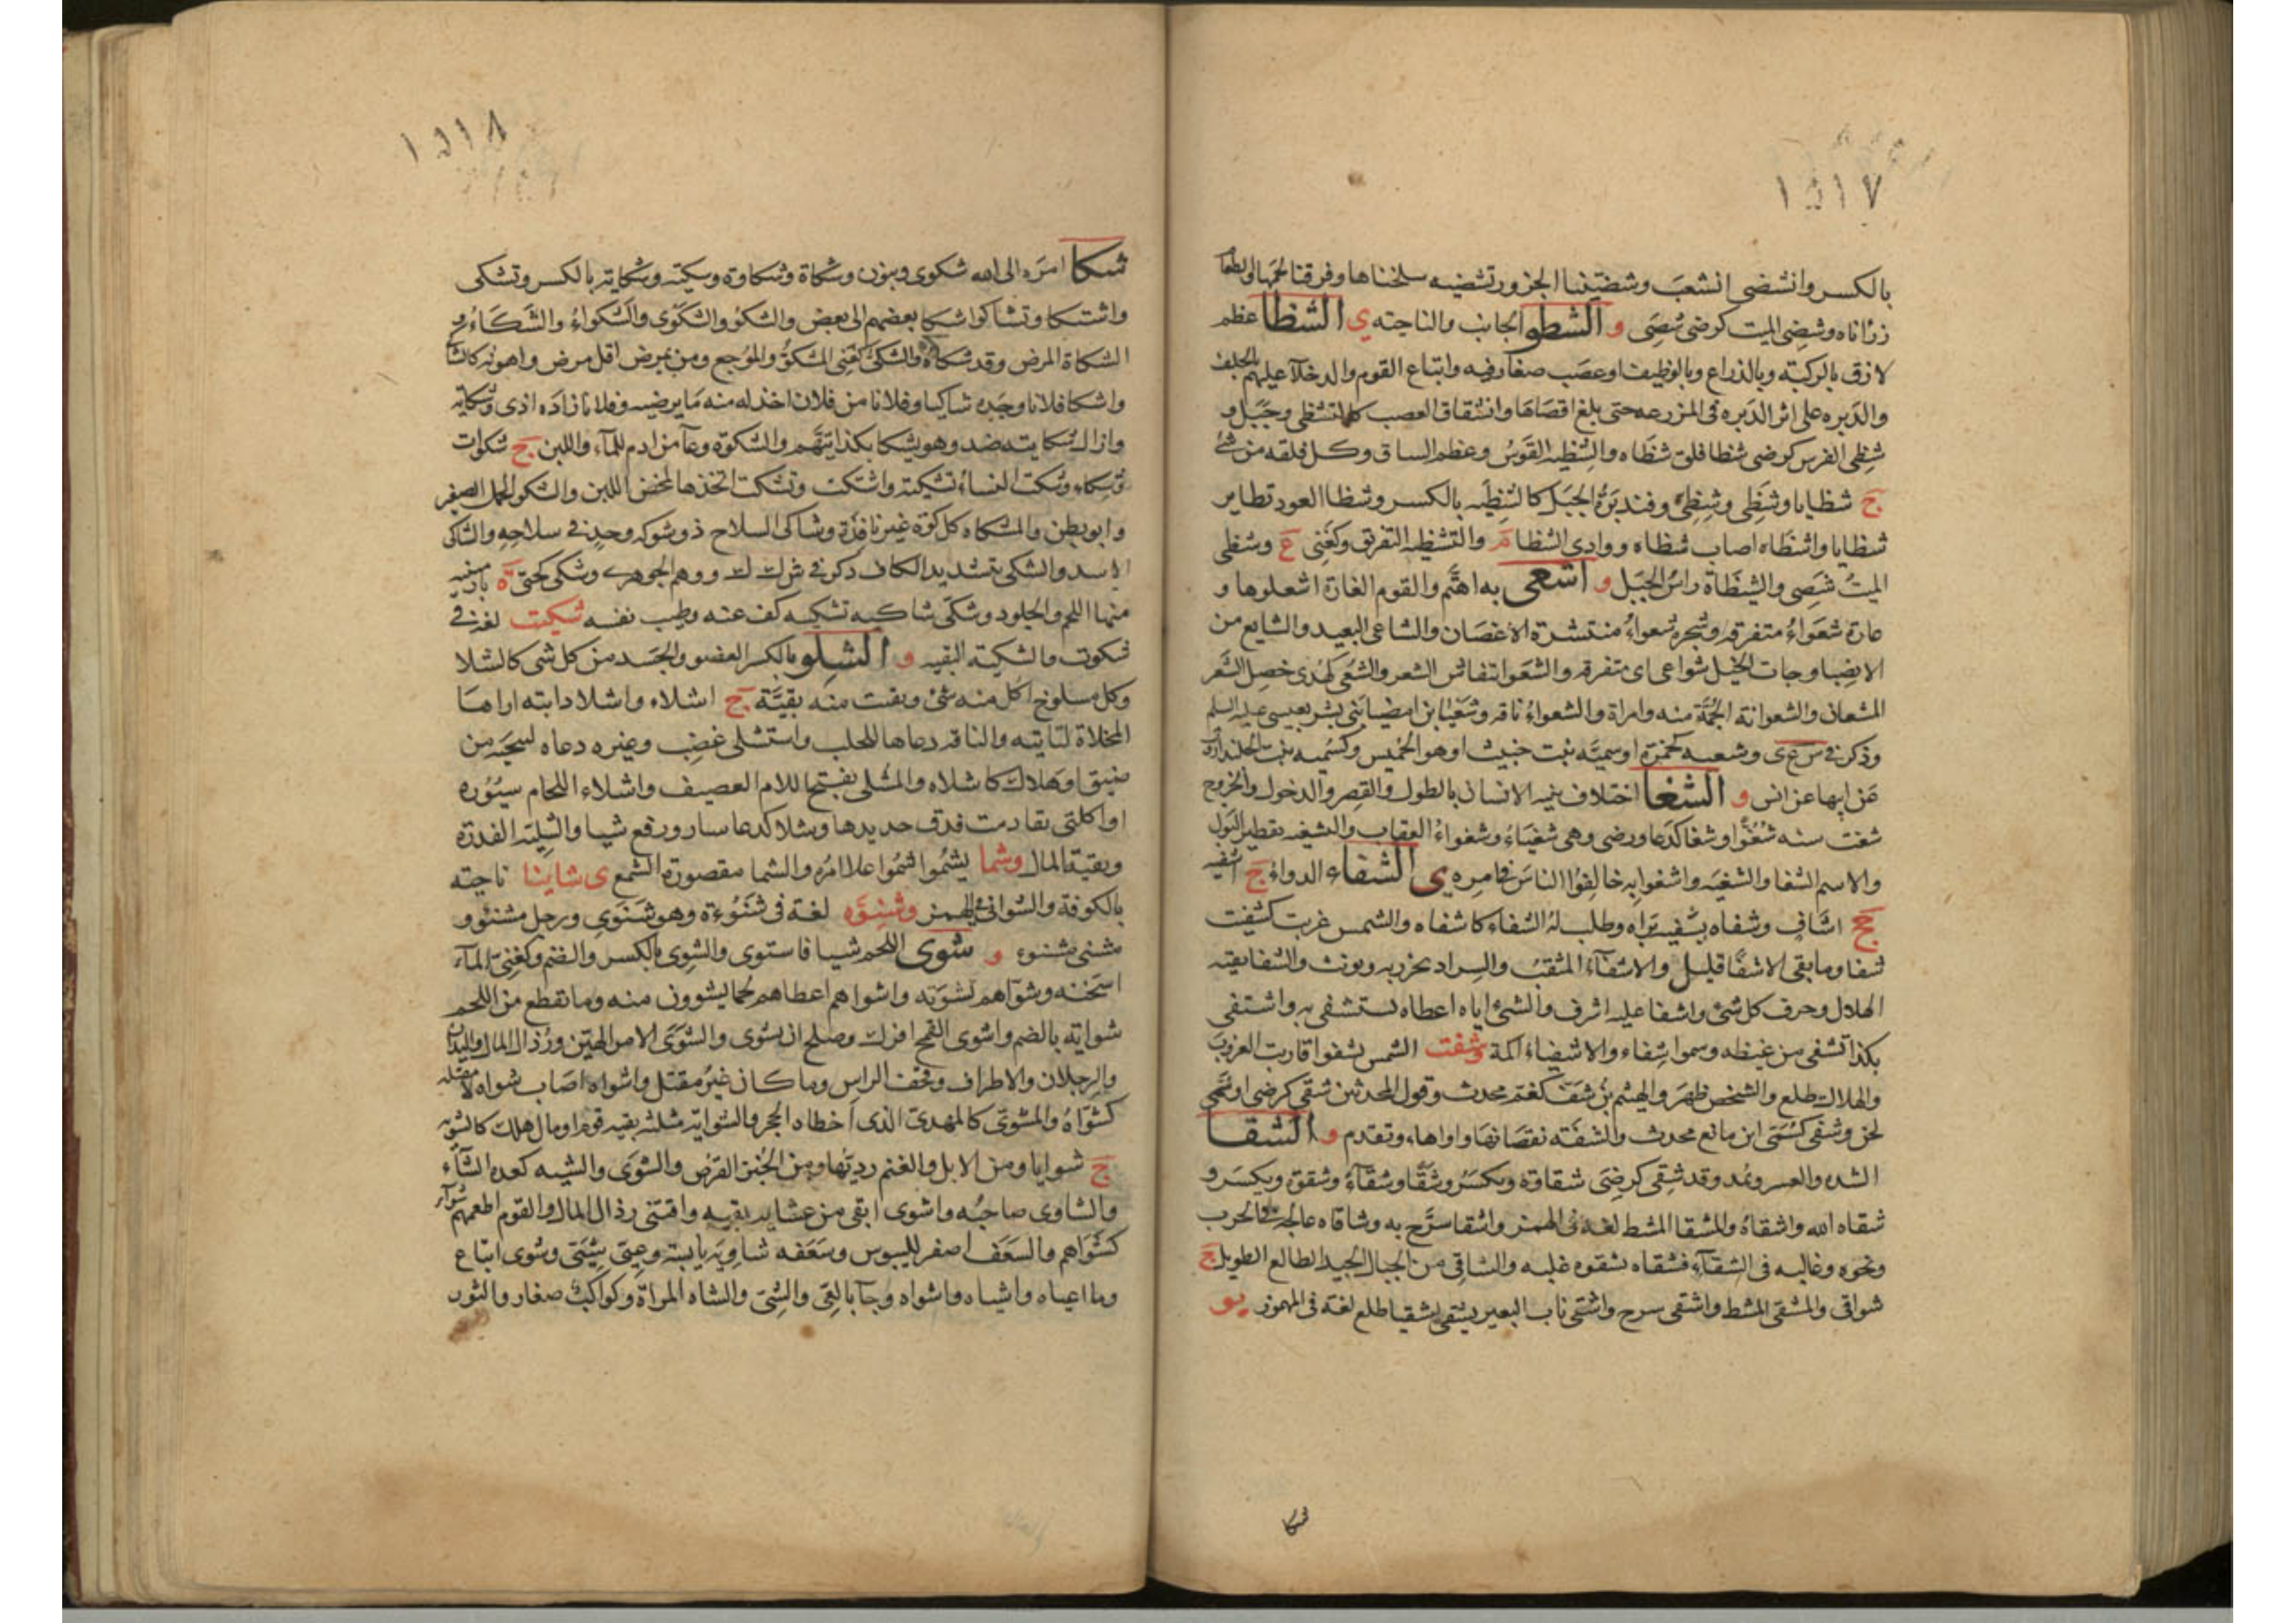 ١٥١٧
بالكسر وانشضى انشعب وشضيننا الجزور تشضيه سلخناها وفرقنا لحمها
زرئاناه وشضى الميت كرضى شصى و الشطو الجانب والناحيته ى الشظا عظم
لازق بالركبته وبالذراع وبالوظيف او عصب صغار فيه واتباع القوم والدخلآ عليهم بالحلف
والدبره على اثر الدبره فى المزرعه حتى بلغ اقصاها وانشقاق العصب كالتشظى وجبل و
شظى الفرس كرضى شظا فلق شظاه والشظيه القوس وعظم الساق وكل فلقه من شئ
ج شظايا وشظى وشظى وفنديرة الجبل كالشظيه بالكسر وشظا العود تطاير
شظايا واشظاه اصاب شظاه ووادى الشظا م والتشظيه التفريق وكغنى ع وشظى
الميت شصى والشظاة راس الجبل و اشعى به اهتم والقوم الغارة اشعلوها و
غارة شعواء متفرقه وشجره شعواء منتشرة الاغصان والشاعى البعيد والشايع من
الايضبا وجات الخيل شواعى اى متفرقه والشعو انتفاش الشعر والشعى كهدى خصل الشعر
المشعان والشعوانة الجمة منه وامراة والشعواء ناقه وشعيا بن امضيا نبى بشر بعيسى عليه السلم
وذكر فى س ع ى وشعيه كحمزة او سميه بنت حبيث او هو الخميس وكسميه بنت الجلندا
عن ابيها عن انس و الشغا اختلاف بنيه الاسنان بالطول والقصر والدخول والخروج
شغت سنه شغوا وشغا كدعا ورضى وهى شغياء وشغواء العقاب والشغيه تقطير البول
والاسم الشغا والشغيه واشغوا به خالفوا الناس فى امره ى الشفاء الدواء ج اشفيه
جج اشاف وشفاه يشفيه براه وطلب له الشفاء كاشفاه والشمس غربت كشفيت
شفا وما بقى الا شفا قليل والاشفآء المثقب والسراد يخرز به ويونث والشفا بقيه
الهلال وحرف كل شئ واشفا عليه اشرف والشئ اياه اعطاه يستشفى به واشتفى
بكذا تشفى من غيظه وسموا شفاء والاشفياء اكمة وشفت الشمس تشفوا قاربت الغروب
والهلال طلع والشخص ظهر والهيثم بن شف كغنم محدث وقول المحدثين شقى كرضى او سمى
لحن وشفى كسمى ابن ماتع محدث والشفته نقصانها واو او هاء وتقدم و الشقا
الشده والعسر ويمد وقد شقى كرضى شقاوة ويكسر وشقا وشقآء وشقوة ويكسر و
شقاه الله واشقاه والمشقا المشط لغة فى الهمز واشقا سرح به وشاقاه عالجه فى الحرب
ونحوه وغالبه فى الشقآء فشقاه يشقوه غلبه والشاقى من الجبال الحيد الطالع الطويل ج
شواقى والمشقى المشط واشقى سرح واشقى ناب البعير يشقى شقيا طلع لغة فى المهموز يو
شكا
١٥١٨
شكا امره الى الله شكوى وينون وشكاة وشكاوة وشكيته وشكايته بالكسر وتشكى
واشتكا وتشاكوا شكا بعضهم الى بعض والشكو والشكوى والشكواء والشكاء و
الشكاة المرض وقد شكاه والشكى كغنى المشكو والموجع ومن يمرض اقل مرض واهونه كالشا
واشكا فلانا وجده شاكيا وفلانا من فلان اخذ له منه ما يرضيه وفلانا زاده اذى وشكايته
وازال شكايته ضد وهو يشكا بكذا يتهم والشكوة وعآ من ادم للمآء واللبن ج شكوات
وشكاء وشكت النساء تشكيته واشتكت وتشكت اتخذها لمخض اللبن والشكو الحمل الصغير
وابو بطن والمشكاه كل كوة غير نافذة وشاكى السلاح ذو شوكه وحد فى سلاحه والشاكى
الاسد والشكى بتشديد الكاف ذكر فى ش ك ك ووهم الجوهرى وشكى كحتى ة بارمنيه
منها اللجم والجلود وشكى شاكيه تشكيه كف عنه وطيب نفسه شكيت لغة فى
شكوت والشكيته البقيه و الشلو بالكسر العضو والجسد من كل شى كالشلا
وكل مسلوخ اكل منه شئ وبقت منه بقية ج اشلاء واشلا دابته اراها
المخلاة لتاتيه والناقه دعاها للحلب واستشلى غضب وغيره دعاه لينجيه من
ضيق او هلاك كاشلاه والمشلى بفتح اللام العصيف واشلاء اللجام سيوره
او اكلتى تقادمت فدق حديدها وشلا كدعا سار ورفع شيا والشليه الفدرة
وبقية المال وشما يشموا شموا علا امره والشما مقصورة الشمع ى شاينا ناحيته
بالكوفة والشوانى فى الهمز وشنوه لغة فى شنوءة وهو شنوى ورجل مشنو و
مشنى مشنوء و شوى اللحم شيا فاشتوى والشوى بالكسر والضم وكغنى المآء
اسخنه وشواهم تشويه واشواهم اعطاهم لحما يشوون منه وما تقطع من اللحم
شوايته بالضم واشوى القمح افرك وصلح ان يشوى والشوى الامر الهين ورذال المال واليدان
والرجلان والاطراف وقحف الراس وما كان غير مقتل واشواه اصاب شواه لا مقتله
كشواه والمشوى كالمهدى الذى اخطاه الحجر والشوايه مثلثه بقيه قوم او مال هلك كالشويه
ج شوايا ومن الابل والغنم رديها ومن الخبز القرص والشوى والشيه كعده الشآء
والشاوى صاحبه واشوى ابقى من عشايه بقيه واقتنى رذال المال والقوم اطعمهم شوآء
كشواهم والسعف اصفر لليبوس وسعفه شاويه يابسة وعيى شيى وشوى اتباع
وما اعياه واشياه واشواه وجآ بالعى والشى والشاه المراة وكواكب صغار والثور